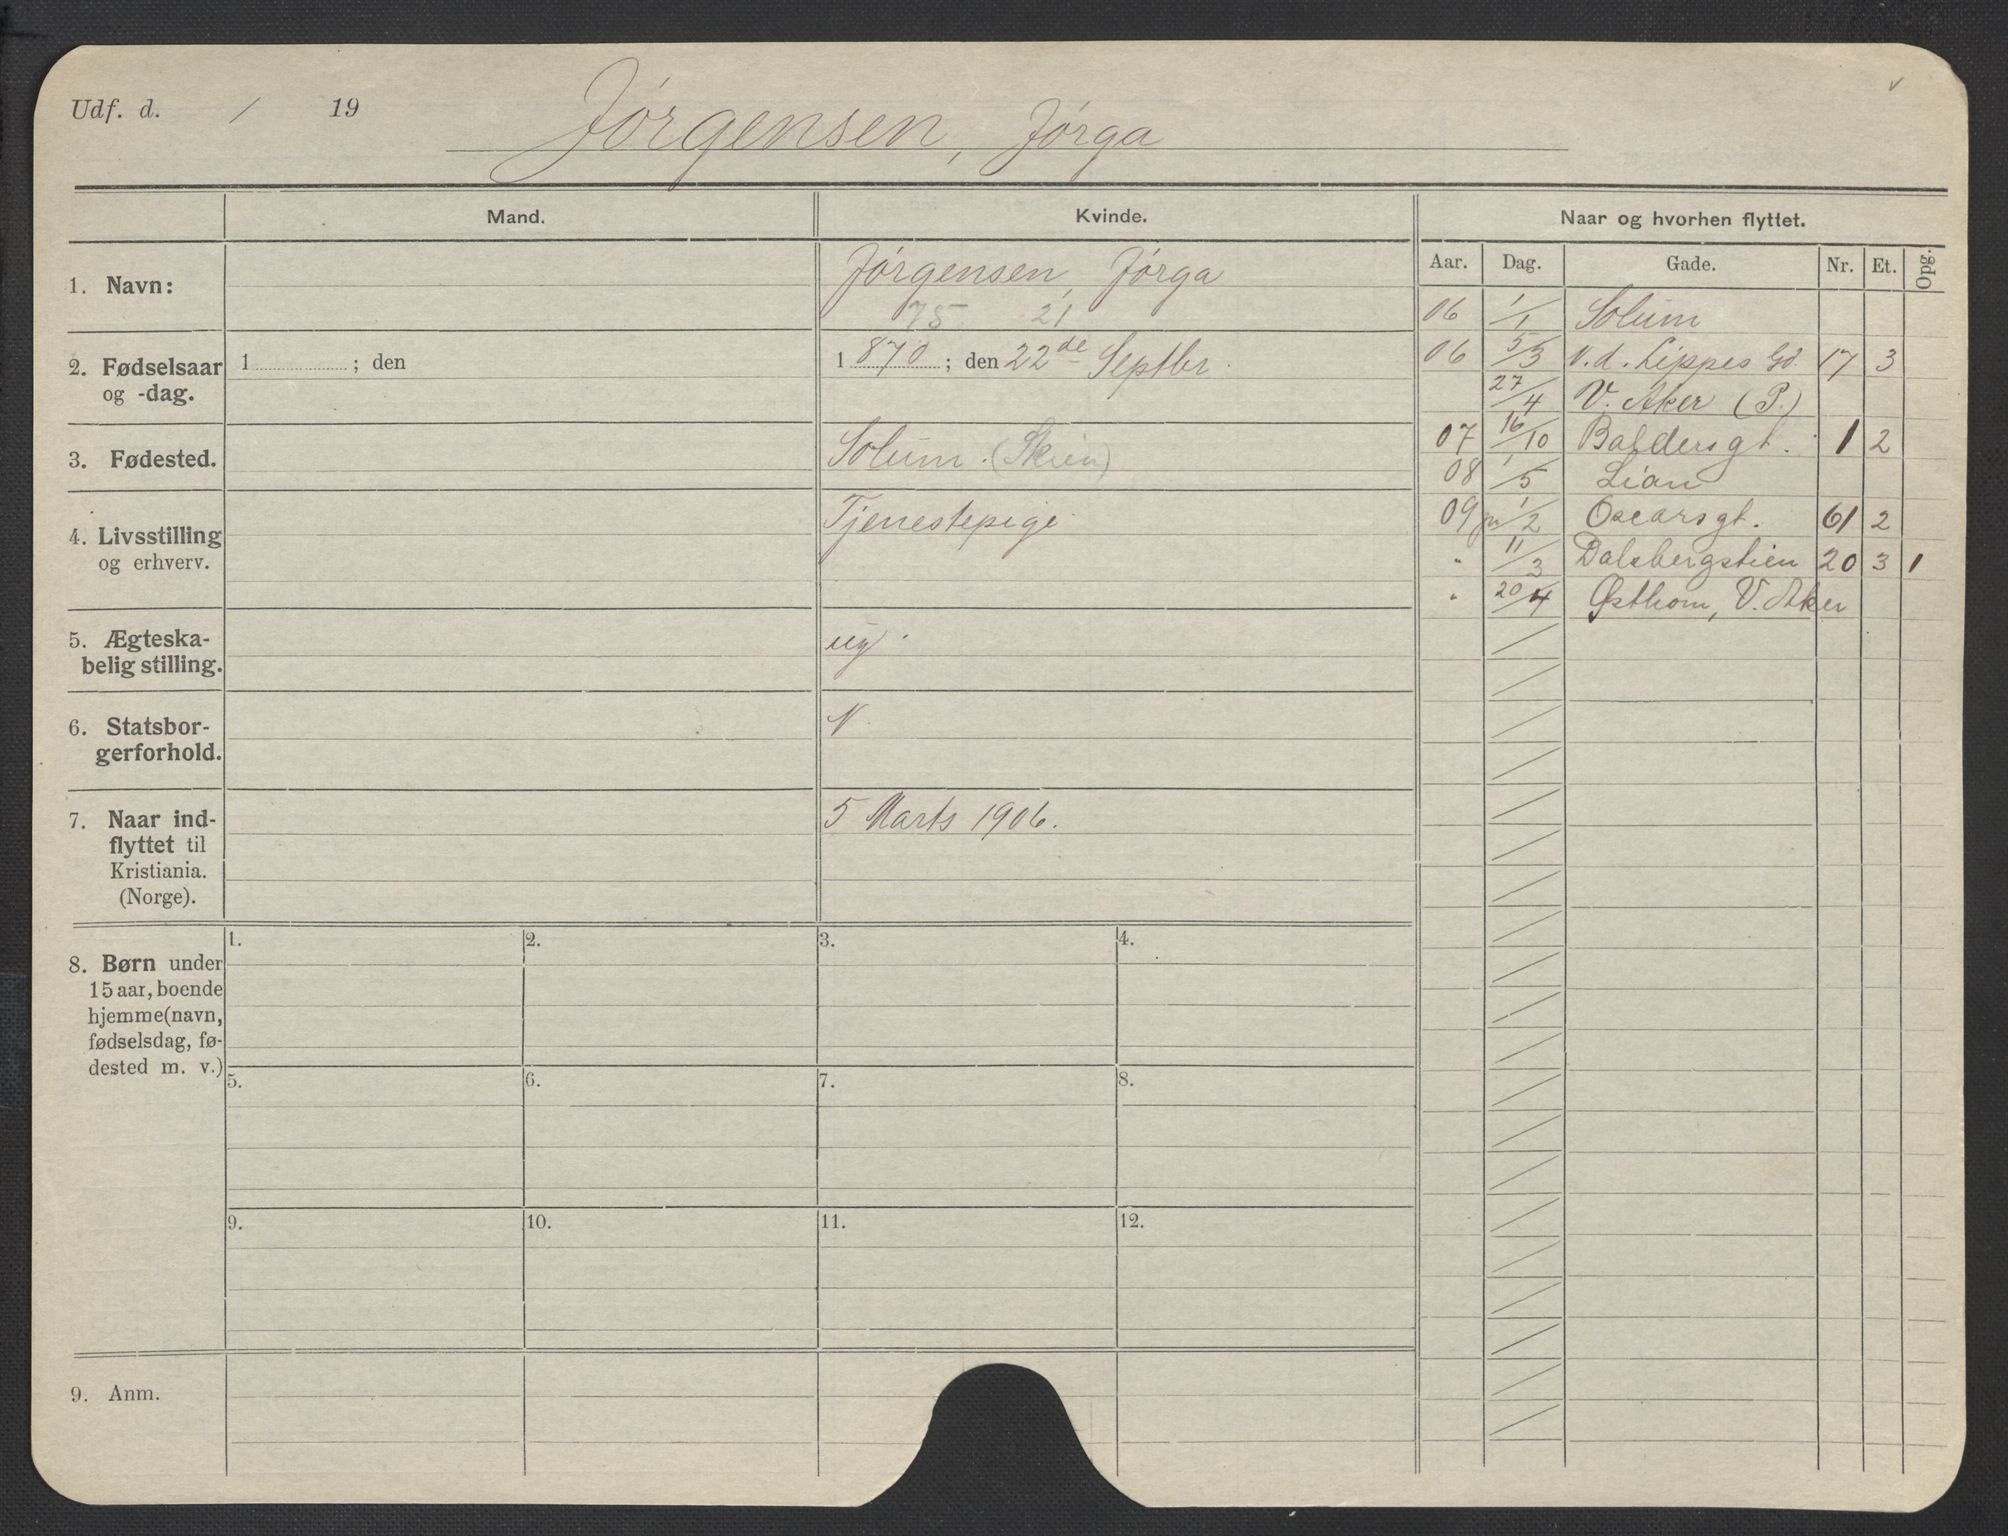 Udf. d. / 19
Jörgensen, Jörga
Mand. Kvinde. Naar og hvorhen flyttet.
Aar. Dag. Gade. Nr. Et. Opg.
1. Navn: Jörgensen, Jörga
75 21
2. Fødselsaar og -dag. 1 ; den
1 870 ; den 22de Septbr.
3. Fødested. Solum. (Skien)
4. Livsstilling og erhverv. Tjenestepige
5. Ægteska-
belig stilling. ug.
6. Statsbor-
gerforhold. N.
7. Naar ind-
flyttet til
Kristiania.
(Norge). 5 Marts 1906.
06 1/1 Solum
06 5/3 v. d. Lippes Gd. 17 3
27/4 V. Aker (P.)
07 16/10 Baldersgt. 1 2
08 1/5 Lian
09 1/2 Oscarsgt. 61 2
" 11/3 Dalsbergstien 20 3 1
" 20/4 Østhom, V. Aker
8. Børn under
15 aar, boende
hjemme (navn,
fødselsdag, fø-
dested m. v.)
1. 2. 3. 4.
5. 6. 7. 8.
9. 10. 11. 12.
9. Anm.